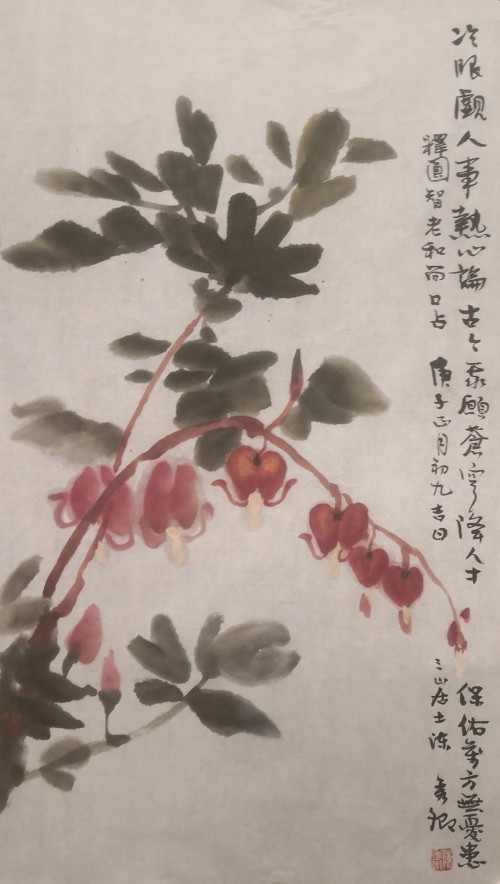 冷眼觀人事熱心論古今 願蒼穹降人才 保佑萬方無憂患
釋圓智老和尚口占 庚子正月初九吉日 三山居士陳秀卿